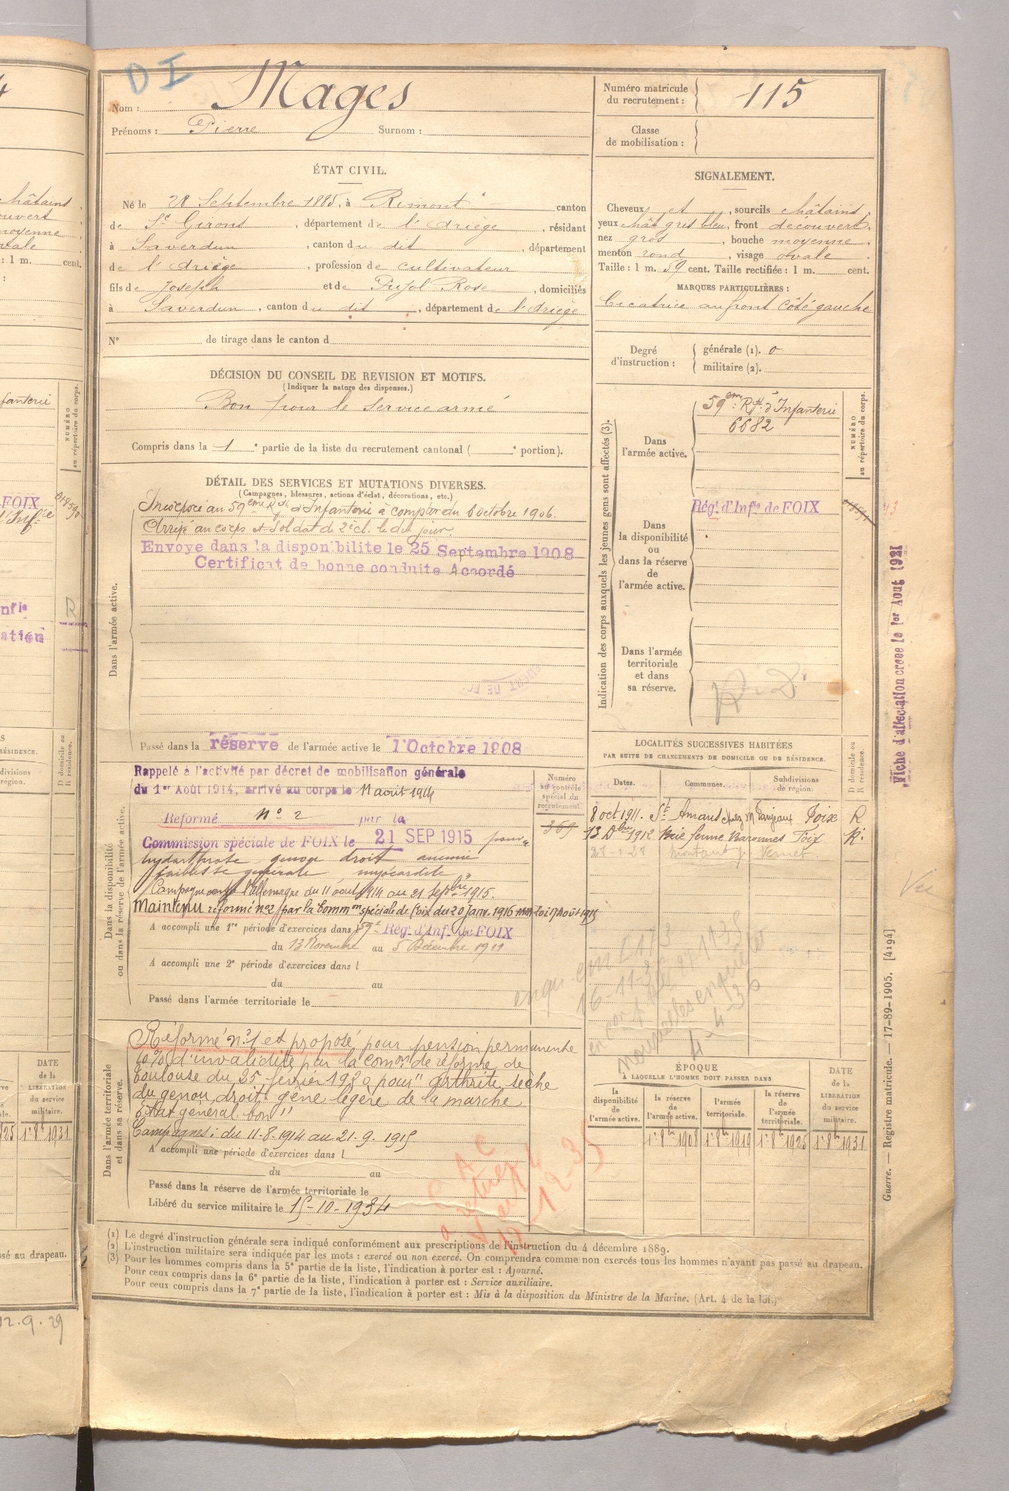 DI
Nom : Mages
Prénoms : Pierre Surnom :
Numéro matricule du recrutement : 115
Classe de mobilisation :
ÉTAT CIVIL.
Né le 28 Septembre 1885, à Rimont canton
de St Girons, département de l'Ariège, résidant
à Saverdun, canton du dit, département
de l'Ariège, profession de cultivateur
fils de Joseph et de Pujol Rose, domiciliés
à Saverdun, canton du dit, département de l'Ariège
N° de tirage dans le canton d
SIGNALEMENT.
Cheveux et, sourcils châtains,
yeux chât gris bleu, front découvert,
nez gros, bouche moyenne,
menton rond, visage ovale.
Taille : 1 m. 59 cent. Taille rectifiée : 1 m. cent.
MARQUES PARTICULIÈRES :
Cicatrice au front côté gauche
Degré d'instruction : générale (1). 0
militaire (2).
DÉCISION DU CONSEIL DE REVISION ET MOTIFS.
(Indiquer la nature des dispenses.)
Bon pour le service armé
Compris dans la 1e partie de la liste du recrutement cantonal (e portion).
DÉTAIL DES SERVICES ET MUTATIONS DIVERSES.
(Campagnes, blessures, actions d'éclat, décorations, etc.)
Dans l'armée active.
Incorporé au 59ème Rgt d'Infanterie à compter du 8 octobre 1906.
Arrivé au corps et soldat de 2e cl. le dit jour.
Envoye dans la disponibilite le 25 Septembre 1908
Certificat de bonne conduite Accordé
Passé dans la réserve de l'armée active le 1 Octobre 1908
Indication des corps auxquels les jeunes gens sont affectés (3).
NUMÉRO au répertoire du corps.
Dans l'armée active.
59em Rgt d'Infanterie
6682
Dans la disponibilité ou dans la réserve de l'armée active.
Rég. d'Infie de FOIX
Dans l'armée territoriale et dans sa réserve.
Fiche d'affectation créée le 1er Août 1921
Dans la disponibilité ou dans la réserve de l'armée active.
Rappelé à l'activité par décret de mobilisation générale
du 1er Août 1914, arrivé au corps le 11 août 1914
Réformé n° 2 par la
Commission spéciale de FOIX le 21 SEP 1915 pour
hydarthrose genou droit
faiblesse générale myocardite
Campagne contre l'Allemagne du 11 août 1914 au 21 Septbre 1915.
Maintenu réformé n°2 par la Common spéciale de Foix du 20 Janv. 1916
A accompli une 1re période d'exercices dans l 59e Rég. d'Inf. de FOIX
du 13 Novembre au 5 Décembre 1911
A accompli une 2e période d'exercices dans l
du au
Passé dans l'armée territoriale le
Numéro au contrôle spécial du recrutement.
LOCALITÉS SUCCESSIVES HABITÉES
PAR SUITE DE CHANGEMENTS DE DOMICILE OU DE RÉSIDENCE.
Dates. Communes. Subdivisions de région. D domicile ou R résidence.
8 oct 1911. St Amans chez M Foix R
13 Dbre 1912 ferme Baronnes Foix R.
Dans l'armée territoriale et dans sa réserve.
Réformé n°1 et proposé pour pension permanente
10% d'invalidité par la Comon de réforme de
Toulouse du 25 février 1930 pour "arthrite sèche
du genou droit, gêne légère de la marche
état général bon"
Campagnes : du 11-8-1914 au 21-9-1915
A accompli une période d'exercices dans l
du au
Passé dans la réserve de l'armée territoriale le
Libéré du service militaire le 15-10-1934
ÉPOQUE
À LAQUELLE L'HOMME DOIT PASSER DANS
la disponibilité de l'armée active. la réserve de l'armée active. l'armée territoriale. la réserve de l'armée territoriale. DATE de la LIBÉRATION du service militaire.
1er 8bre 1908 1er 8bre 1919 1er 8bre 1925 1er 8bre 1931
(1) Le degré d'instruction générale sera indiqué conformément aux prescriptions de l'instruction du 4 décembre 1889.
(2) L'instruction militaire sera indiquée par les mots : exercé ou non exercé. On comprendra comme non exercés tous les hommes n'ayant pas passé au drapeau.
(3) Pour les hommes compris dans la 5e partie de la liste, l'indication à porter est : Ajourné.
Pour ceux compris dans la 6e partie de la liste, l'indication à porter est : Service auxiliaire.
Pour ceux compris dans la 7e partie de la liste, l'indication à porter est : Mis à la disposition du Ministre de la Marine. (Art. 4 de la loi.)
Guerre. — Registre matricule. — 17-89-1905. [4194]
12.9.29